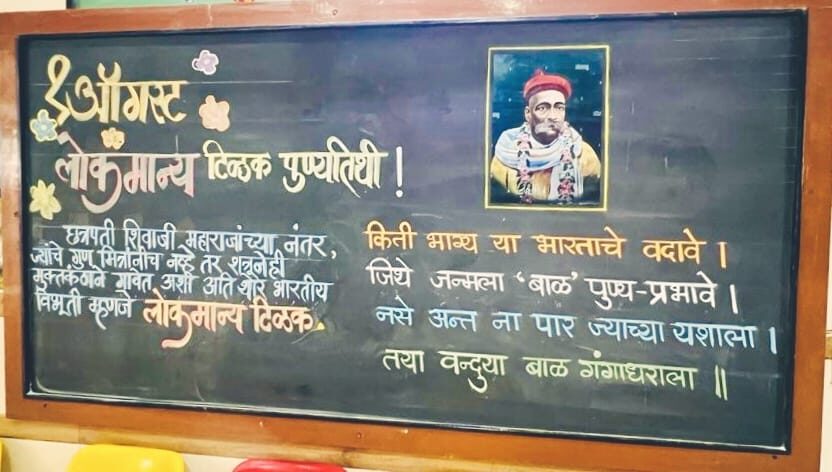 १ ऑगस्ट
लोकमान्य टिळक पुण्यतिथी !
छत्रपती शिवाजी महाराजांच्या नंतर,
ज्यांचे गुण मित्रांनीच नव्हे तर शत्रूनेही
मुक्तकंठाने गावेत अशी अति थोर भारतीय
विभूती म्हणजे लोकमान्य टिळक.
किती भाग्य या भारताचे वदावे ।
जिथे जन्मला 'बाळ' पुण्य-प्रभावे ।
नसे अन्त ना पार ज्याच्या यशाला ।
तया वन्दुया बाळ गंगाधराला ॥